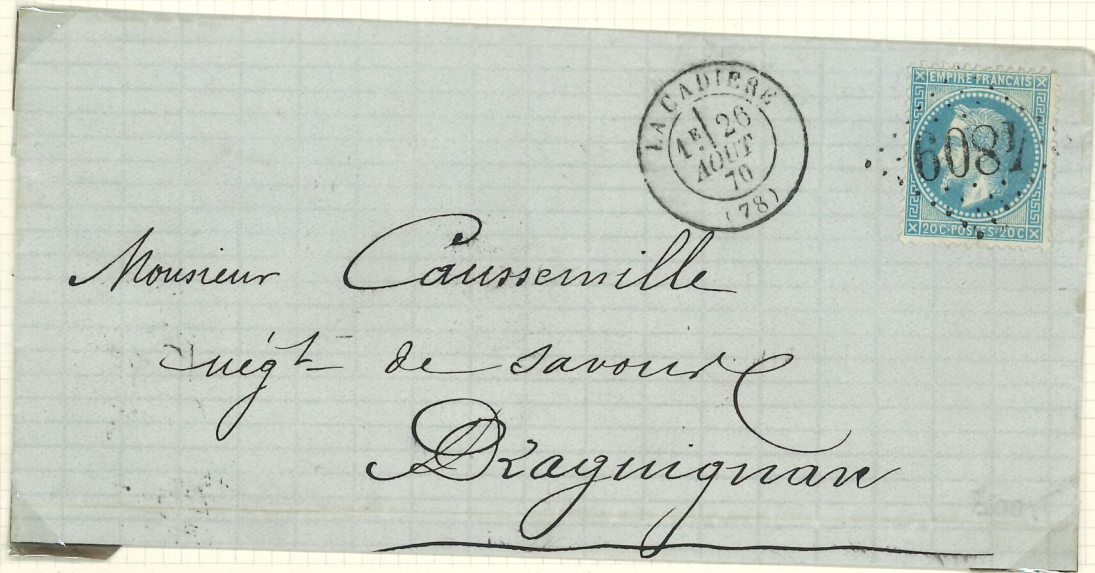 LA CADIERE
1E 26
AOUT
70
(78)
EMPIRE FRANCAIS
6084
20C·POSTES·20C
Monsieur Caussemille
négt de savons
Draguignan